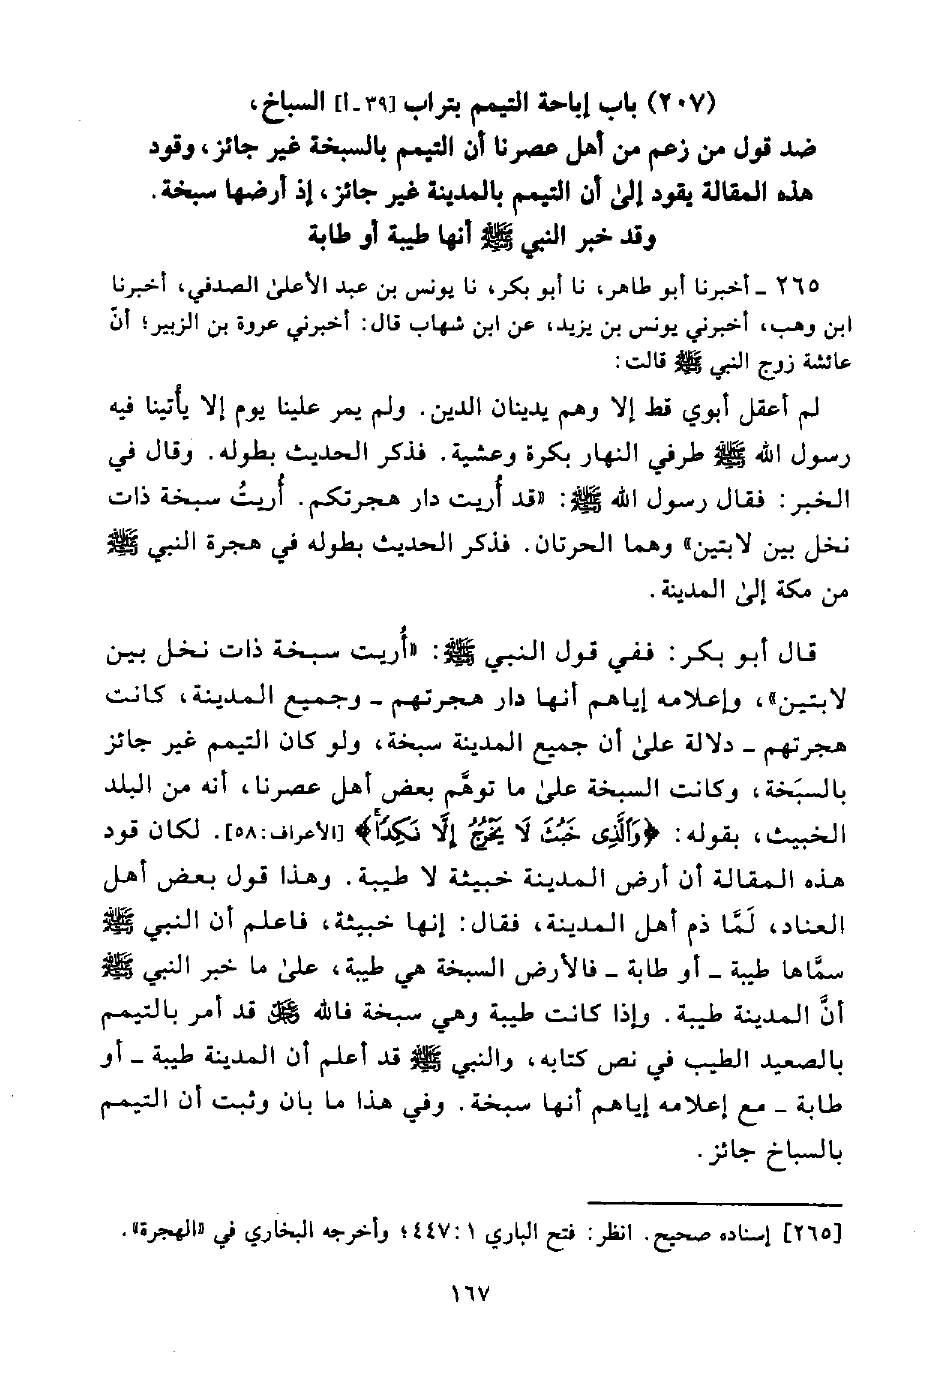 (٢٠٧) باب إباحة التيمم بتراب [٣٩ـ ا] السباخ،
ضد قول من زعم من أهل عصرنا أن التيمم بالسبخة غير جائز، وقود
هذه المقالة يقود إلىٰ أن التيمم بالمدينة غير جائز، إذ أرضها سبخة.
وقد خبر النبي ﷺ أنها طيبة أو طابة
٢٦٥ ـ أخبرنا أبو طاهر، نا أبو بكر، نا يونس بن عبد الأعلىٰ الصدفي، أخبرنا
ابن وهب، أخبرني يونس بن يزيد، عن ابن شهاب قال: أخبرني عروة بن الزبير؛ أنّ
عائشة زوج النبي ﷺ قالت:
لم أعقل أبوي قط إلا وهم يدينان الدين. ولم يمر علينا يوم إلا يأُتينا فيه
رسول الله ﷺ طرفي النهار بكرة وعشية. فذكر الحديث بطوله. وقال في
الخبر: فقال رسول الله ﷺ: «قد أُريت دار هجرتكم. أُريتُ سبخة ذات
نخل بين لابتين» وهما الحرتان. فذكر الحديث بطوله في هجرة النبي ﷺ
من مكة إلىٰ المدينة.
قال أبو بكر: ففي قول النبي ﷺ: «أُريت سبخة ذات نخل بين
لابتين»، وإعلامه إياهم أنها دار هجرتهم ـ وجميع المدينة، كانت
هجرتهم ـ دلالة علىٰ أن جميع المدينة سبخة، ولو كان التيمم غير جائز
بالسبَخة، وكانت السبخة علىٰ ما توهَّم بعض أهل عصرنا، أنه من البلد
الخبيث، بقوله: ﴿وَالَّذِى خَبُثَ لَا يَخْرُجُ إِلَّا نَكِدًا﴾ [الأعراف:٥٨]. لكان قود
هذه المقالة أن أرض المدينة خبيثة لا طيبة. وهذا قول بعض أهل
العناد، لَمَّا ذم أهل المدينة، فقال: إنها خبيثة، فاعلم أن النبي ﷺ
سمَّاها طيبة ـ أو طابة ـ فالأرض السبخة هي طيبة، علىٰ ما خبر النبي ﷺ
أنَّ المدينة طيبة. وإذا كانت طيبة وهي سبخة فالله ﷻ قد أمر بالتيمم
بالصعيد الطيب في نص كتابه، والنبي ﷺ قد أعلم أن المدينة طيبة ـ أو
طابة ـ مع إعلامه إياهم أنها سبخة. وفي هذا ما بان وثبت أن التيمم
بالسباخ جائز.
[٢٦٥] إسناده صحيح. انظر: فتح الباري ١ :٤٤٧؛ وأخرجه البخاري في «الهجرة».
١٦٧